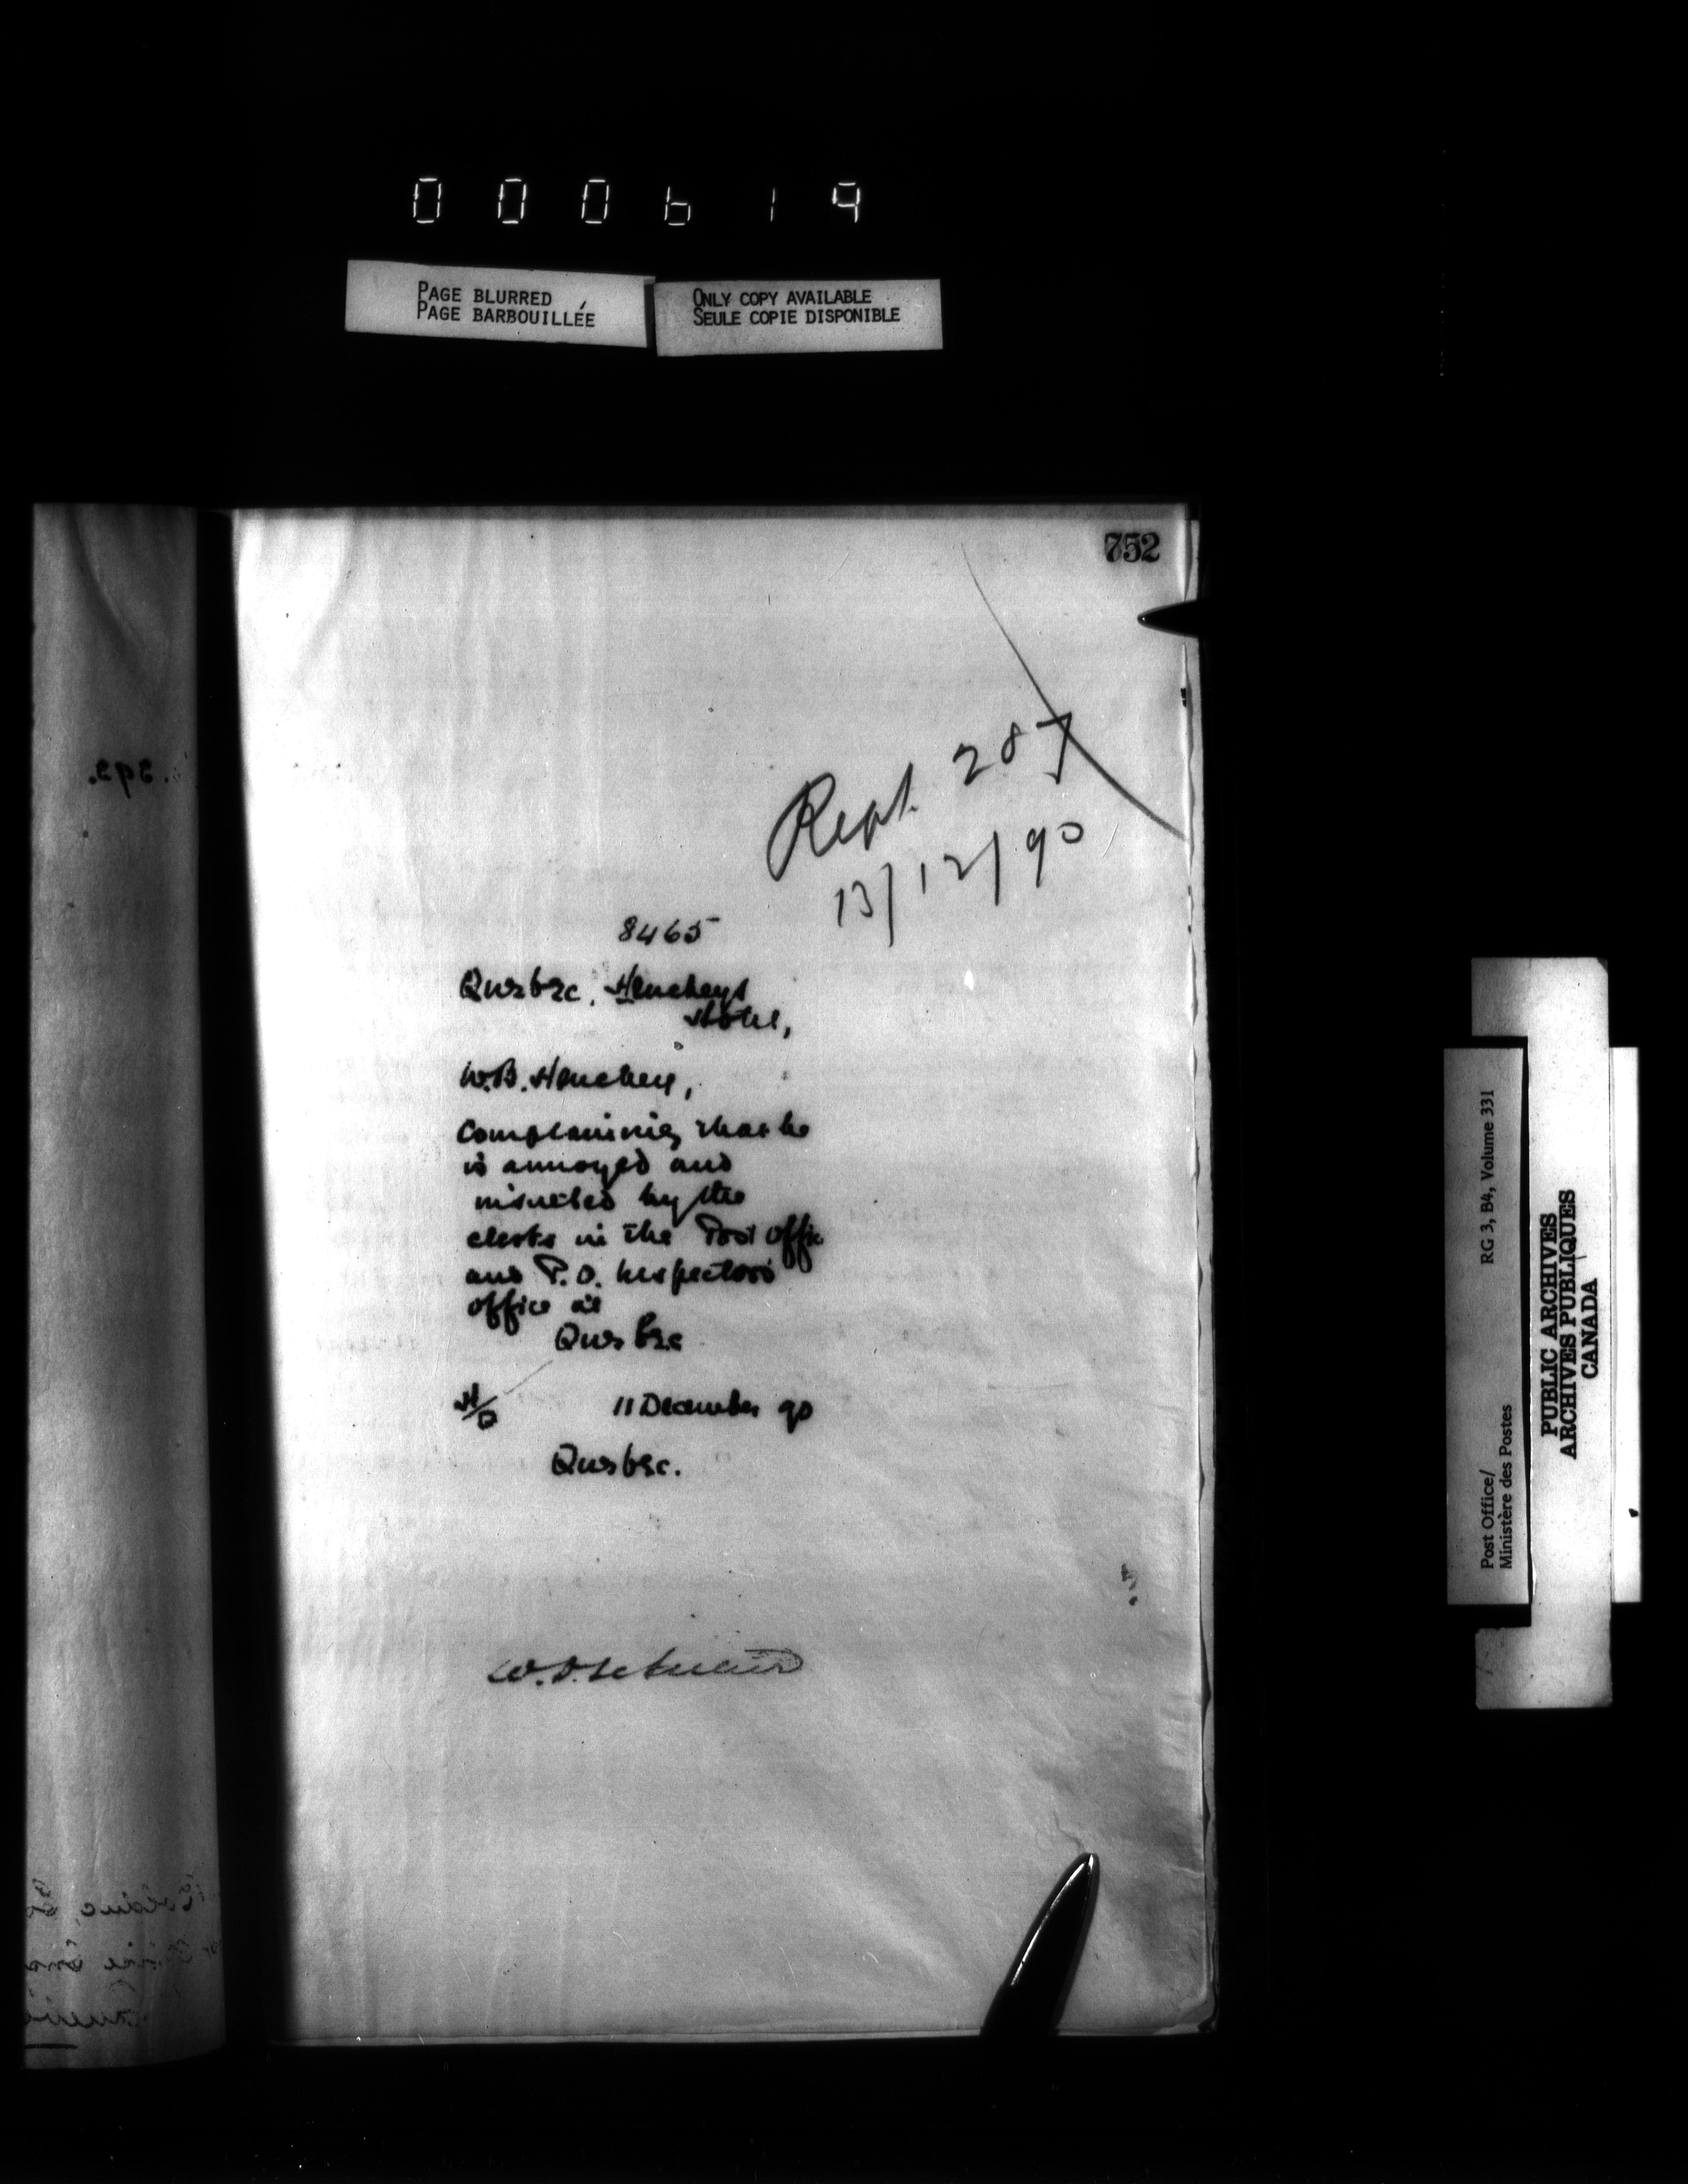 000619
PAGE BLURRED
PAGE BARBOUILLÉE
ONLY COPY AVAILABLE
SEULE COPIE DISPONIBLE
752
Rept. 287
13/12/90
8465
Quebec. Hencheys
Hotel,
W.B. Henchey,
Complaining that he
is annoyed and
insulted by the
clerks in the Post Offic
and P.O. Inspectors
office at
Quebec
H/D 11 December 90
Quebec.
Post Office/
Ministère des Postes
RG 3, B4, Volume 331
PUBLIC ARCHIVES
ARCHIVES PUBLIQUES
CANADA